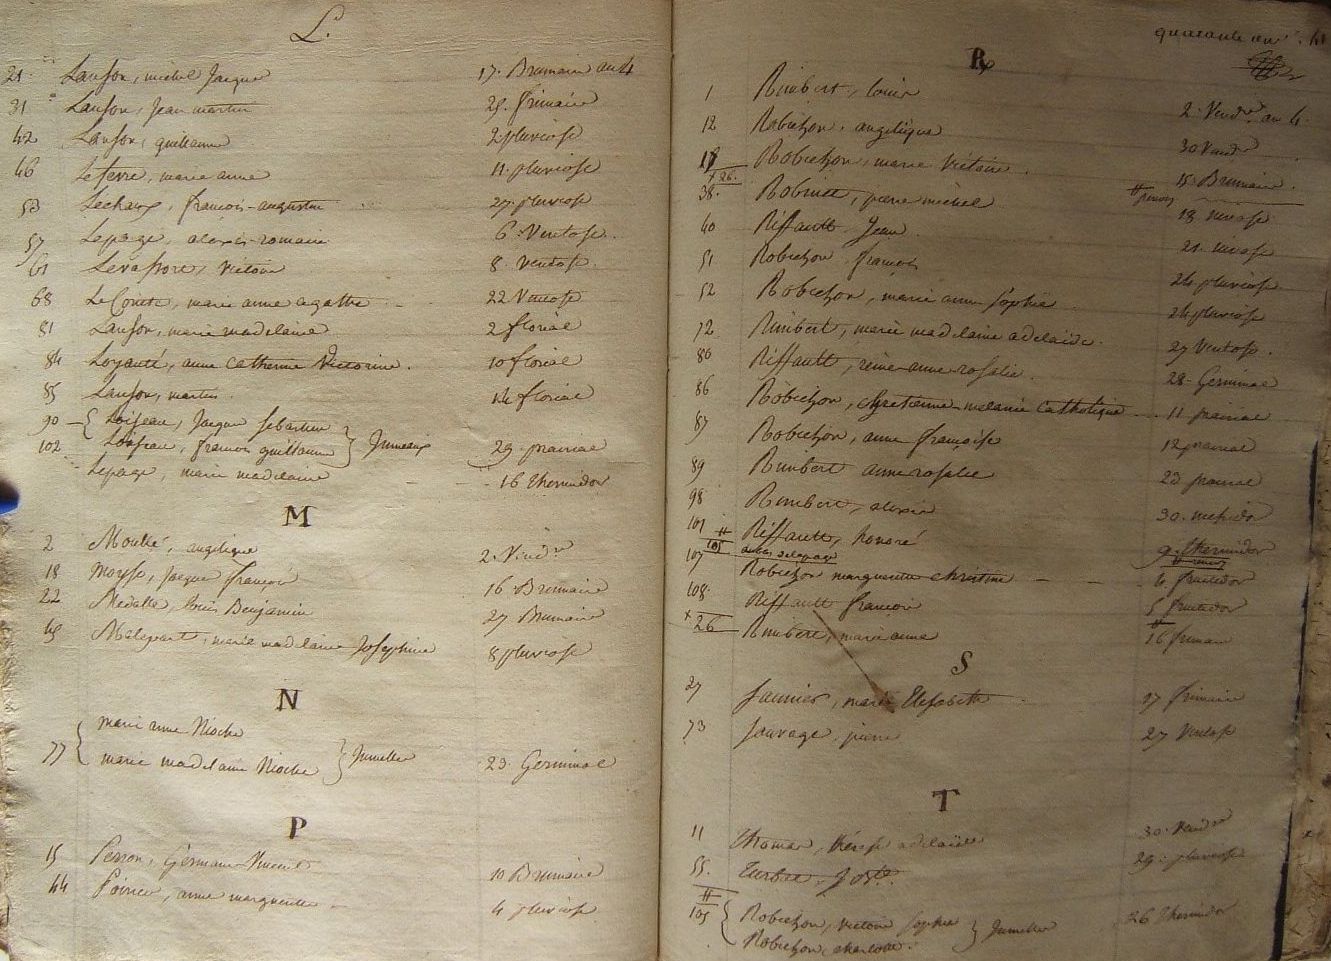 L.
21 Lanson, michel Jacques 17. Brumaire an 4
31 Lanson, Jean martin 29. frimaire
42 Lanson, guillaume 2. pluviose
46 Lefevre, marie anne 11. pluviose
53 Lechaux, francois-augustin 27. pluviose
57 Lepage, alexis-romain 6. Ventose
61 Levassore, Victoire 8. Ventose
68 Le Comte, marie anne agathe 22 Ventose
81 Lanson, marie madelaine 2 floreal
84 Loyauté, anne catherine Victorine. 10 floreal
85 Lanson, martin 14 floreal
90 { Loiseau, Jacque sebastien
Loiseau, francois guillaume } Jumeaux 29. prairial
102 Lepage, marie madelaine 16 thermidor
M
2 angelique 2. Vendre
18 Moyse, Jacque françois 16. Brumaire
22 Medalle, Louis Benjamin 27 Brumaire
marie madelaine Josephine 8 pluviose
N
77 { marie anne Nioche
marie madelaine Nioche } Jumelles 23. Germinal
P
15 Perron, Germain-Vincent 10 Brumaire
44 Poirier, anne marguerite 4 pluviose
quarante un. 41
R
1 Rimbert, louis 2. Vendre an 4.
12 Robichon, angelique 30 Vendre
17 Robichon, marie Victoire. 15. Brumaire.
× 26.
38. Robinet, pierre michel 18 nivose
40 Riffault, Jean 21. nivose
51 Robichon, françois 24 pluviose
52 Robichon, marie anne Sophie 24 pluviose
72 Rimbert, marie madelaine adelaide. 27 Ventose.
80 Riffault, reine-anne-rosalie. 28. Germinal
86 Robichon, chretienne-melanie catholique 11 prairial
87 Robichon, anne françoise 12 prairial
89 Rimbert anne rosalie 23 prairial
98 Rimbert, alexis 30. messidor
101 Riffault, honoré 9. thermidor
# 105 au bas de la page
107 Robichon marguerite christine 6 fructidor
108. Riffault francois 5 fructidor
× 26 Rimbert, marie anne 16 frimaire
S
27 Saunier, marie Elisabeth 17 frimaire
73 Sauvage, pierre 27 Ventose
T
11 Thomas, thérese adelaide 30. Vendre
55. 29. pluviose
#
105 { Robichon, victoire sophie
Robichon, charlotte. } Jumelles 26 thermidor